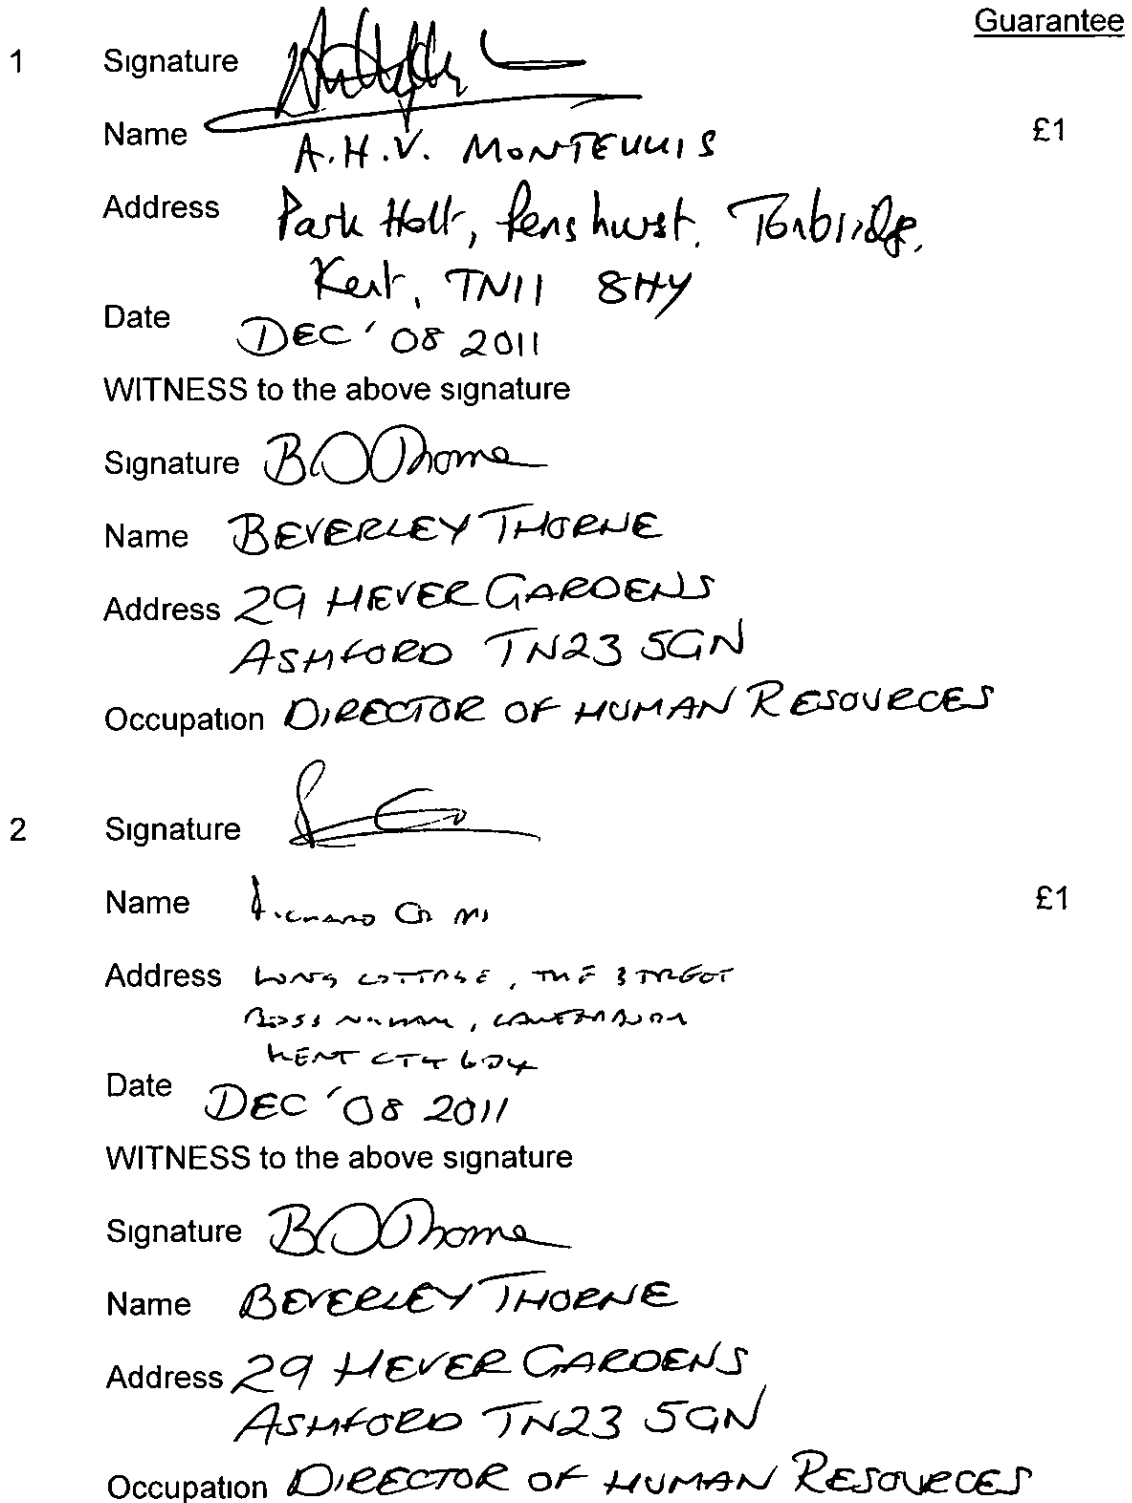 Guarantee
1 Signature
Name A.H.V. MONTEUUIS £1
Address Park Holt, Penshurst, Tonbridge,
Kent, TN11 8HY
Date DEC '08 2011
WITNESS to the above signature
Signature B Thorne
Name BEVERLEY THORNE
Address 29 HEVER GARDENS
ASHFORD TN23 5GN
Occupation DIRECTOR OF HUMAN RESOURCES
2 Signature
Name RICHARD £1
Address LONG COTTAGE, THE STREET
KENT CT4
Date DEC '08 2011
WITNESS to the above signature
Signature B Thorne
Name BEVERLEY THORNE
Address 29 HEVER GARDENS
ASHFORD TN23 5GN
Occupation DIRECTOR OF HUMAN RESOURCES